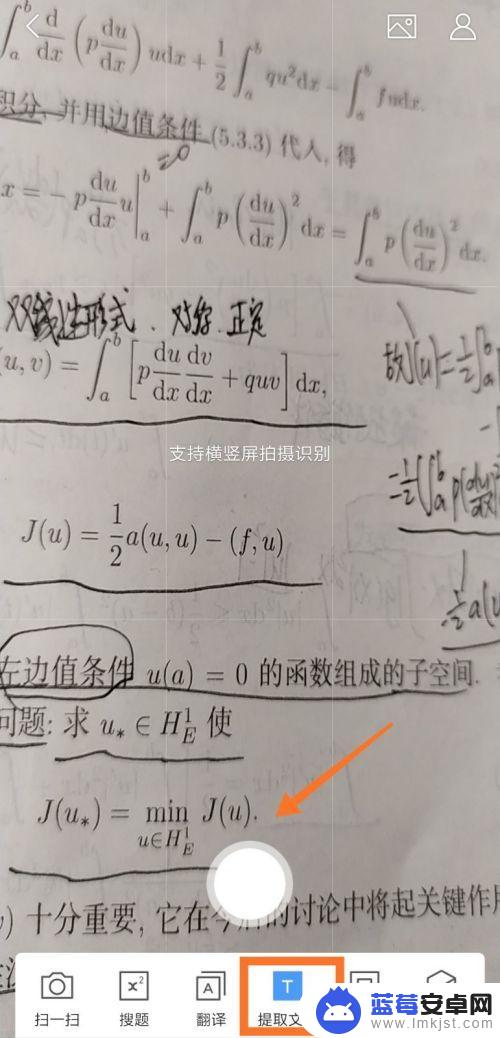 ∫_a^b d/dx (p du/dx) udx + 1/2 ∫_a^b qu²dx − ∫_a^b fudx.
积分, 并用边值条件 (5.3.3) 代人, 得
=0
x = − p du/dx u|_a^b + ∫_a^b p (du/dx)² dx = ∫_a^b p (du/dx)² dx.
双线性形式. 对称. 正定
(u, v) = ∫_a^b [p du/dx dv/dx + quv] dx,
故J(u)=½∫_a^b
支持横竖屏拍摄识别
J(u) = 1/2 a(u, u) − (f, u)
左边值条件 u(a) = 0 的函数组成的子空间.
问题: 求 u_* ∈ H_E^1 使
J(u_*) = min_{u∈H_E^1} J(u).
) 十分重要, 它在今后的讨论中将起关键作用
扫一扫 搜题 翻译 提取文
蓝莓安卓网
www.lmkjst.com